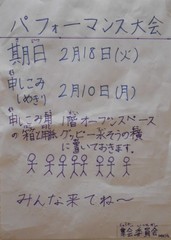 パフォーマンス大会
期日 2月18日(火)
申しこみ
しめきり 2月10日(月)
申しこみ用 1階オープンスペース
の箱は グッピー水そうの横
に置いておきます。
みんな来てね〜
集会委員会